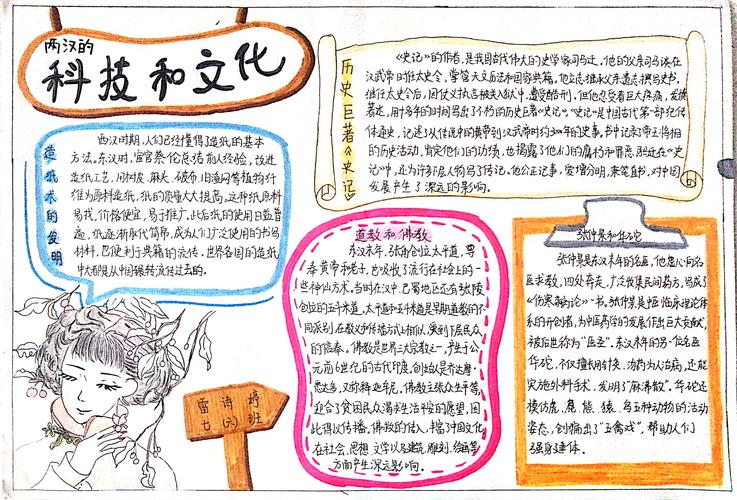 两汉的
科技和文化
造纸术的发明
西汉时期,人们已经懂得了造纸的基本
方法。东汉时,宦官蔡伦总结前人经验,改进
造纸工艺,用树皮、麻头、破布、旧渔网等植物纤
维为原料造纸,纸的质量大大提高。这种纸原料
易找,价格便宜,易于推广,此后纸的使用日益普
遍,纸逐渐取代简帛,成为人们广泛使用的书写
材料,也便利于典籍的流传。世界各国的造纸
术大都是从中国辗转流传过去的。
历史巨著《史记》
《史记》的作者,是我国古代伟大的史学家司马迁,他的父亲司马谈在
汉武帝时任太史令,掌管天文历法和国家典籍,他立志继承父亲遗志撰写史书,
继任太史令后,因仗义执言被关入狱中,遭受酷刑。但他忍受着巨大疼痛,发愤
著述,用十多年的时间写出了不朽的历史巨著《史记》。《史记》是中国古代第一部纪传
体通史,记述了从传说中的黄帝到汉武帝时约3000年的史事。书中记录帝王将相
的历史活动,肯定他们的功绩,也揭露了他们的腐朽和罪恶。司马迁在《史
记》中,还为许多下层人物写了传记。他公正记事,爱憎分明,秉笔直书,对中国
发展产生了深远的影响。
道教和佛教
东汉末年,张角创立太平道,尊
奉黄帝和老子,也吸收了流行在社会上的一
些神仙方术。当时在汉中、巴蜀地区还有张陵
创立的五斗米道。太平道和五斗米道是早期道教的不
同派别,在教义和传播方式上相似,受到下层民众
的信奉。佛教是世界三大宗教之一,产生于公
元前6世纪的古代印度,创始人是乔达摩·
悉达多,又称释迦牟尼。佛教主张众生平等,
迎合了贫困民众渴求生活平安的愿望,因
此得以传播。佛教的传入,丰富了中国文化
在社会、思想、文学以及建筑、雕刻、绘画等
方面产生深远影响。
张仲景和华佗
张仲景是东汉末年的名医,他虚心向名
医求教,四处奔走,广泛收集民间药方,写成了
《伤寒杂病论》一书。张仲景是中医临床理论体
系的开创者,为中医药学的发展作出巨大贡献,
被后世称为“医圣”。东汉末年的另一位名医
华佗,不仅擅长用针灸、汤药为人治病,还能
实施外科手术,发明了“麻沸散”。华佗还
模仿虎、鹿、熊、猿、鸟五种动物的活动
姿态,创编出了“五禽戏”,帮助人们
强身健体。
雷诗婷
七(六)班